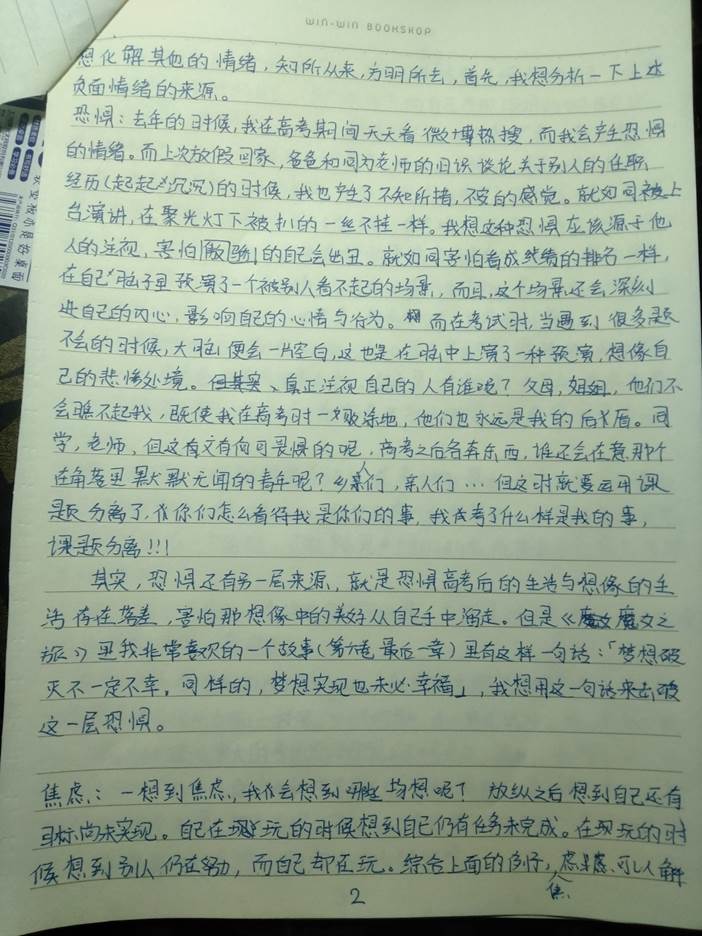 WIN-WIN BOOKSHOP
想化解其他的情绪，知所从来，方明所去，首先，我想分析一下上述
负面情绪的来源。
恐惧：去年的时候，我在高考期间天天看微博热搜，而我会产生恐惧
的情绪。而上次放假回家，爸爸和同为老师的旧识谈论关于别人的任职
经历（起起沉沉）的时候，我也产生了不知所措，不安的感觉。就如同被上
台演讲，在聚光灯下被扒的一丝不挂一样。我想这种恐惧应该源于他
人的注视，害怕的自己会出丑。就如同害怕看成绩的排名一样，
在自己脑子里预演了一个被别人看不起的场景，而且，这个场景还会深刻
进自己的内心，影响自己的心情与行为。而在考试时，当遇到很多题
不会的时候，大脑便会一片空白，这也是在脑中上演了一种预演，想像自
己的悲惨处境。但其实、真正注视自己的人有谁呢？父母，姐姐，他们不
会瞧不起我，既使我在高考时一败涂地，他们也永远是我的后盾。同
学，老师，但这有又有何可畏惧的呢，高考之后各奔东西，谁还会在意那个
在角落里默默无闻的青年呢？乡亲们，亲人们…但这时就要运用课
题分离了，你们怎么看待我是你们的事，我考了什么样是我的事，
课题分离！！！
其实，恐惧还有另一层来源，就是恐惧高考后的生活与想像的生
活存在落差，害怕那想像中的美好从自己手中溜走。但是《魔女之
旅》里我非常喜欢的一个故事（第六卷最后一章）里有这样一句话：「梦想破
灭不一定不幸，同样的，梦想实现也未必幸福」，我想用这一句话来击破
这一层恐惧。
焦虑：一想到焦虑，我会想到哪些场想呢？放纵之后想到自己还有
目标尚未实现。自己在玩的时候想到自己仍有任务未完成。在玩的时
候想到别人仍在努力，而自己却在玩。综合上面的例子，焦虑可以解
2